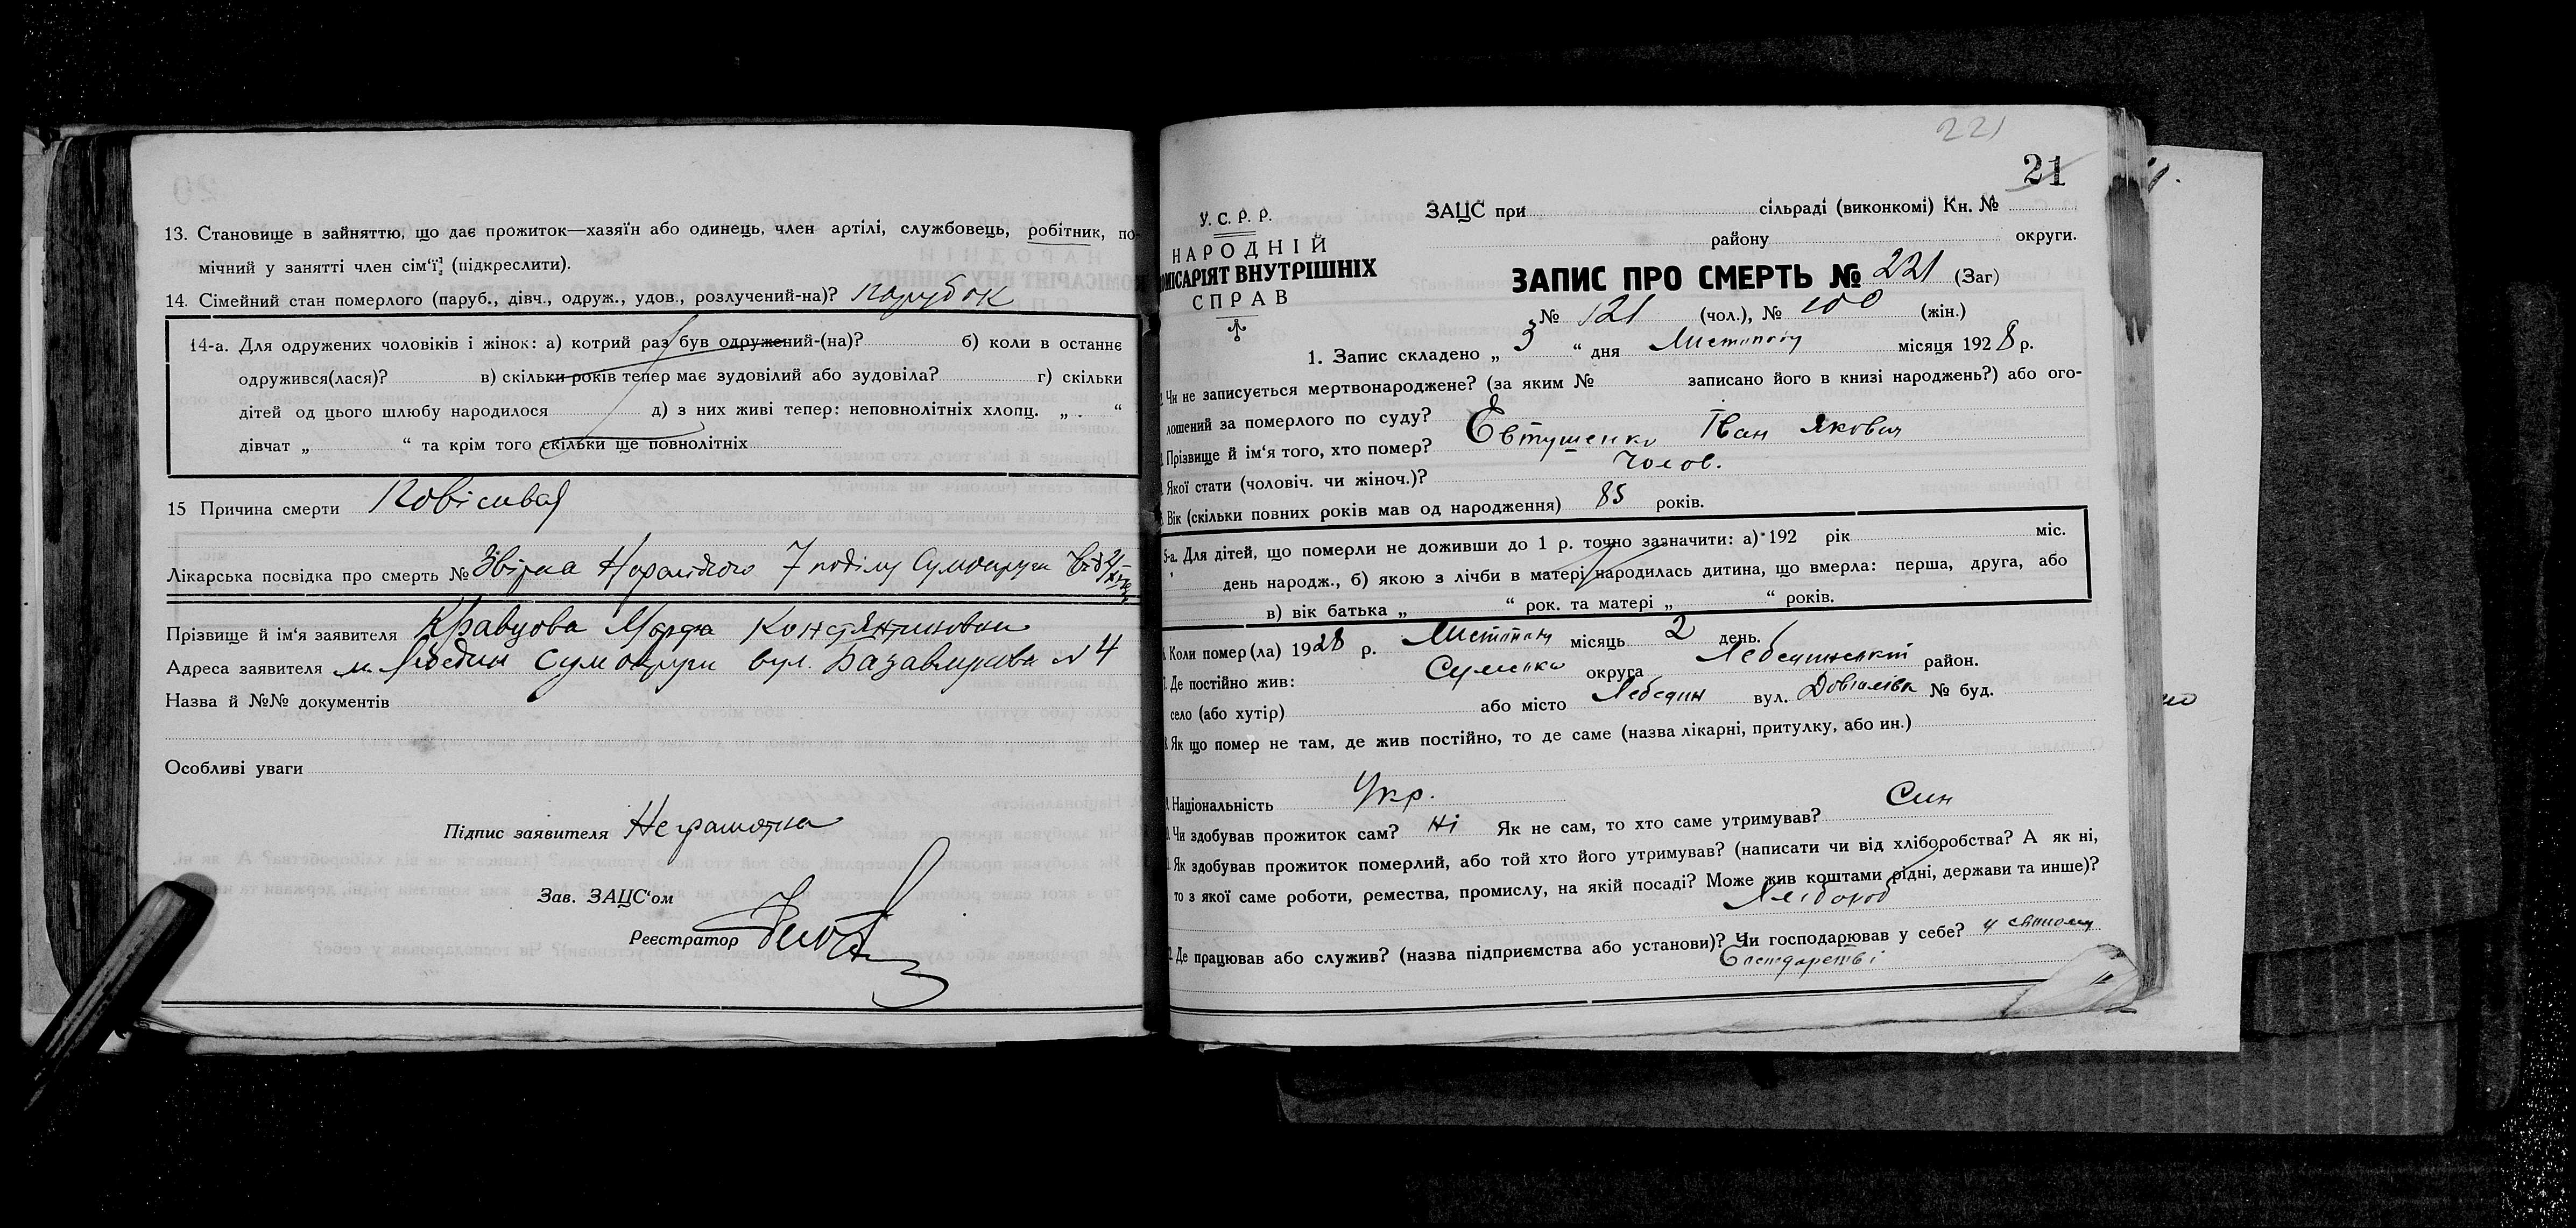 13. Становище в зайняттю, що дає прожиток—хазяїн або одинець, член артілі, службовець, робітник, по-
мічний у занятті член сім'ї; (підкреслити).
14. Сімейний стан померлого (паруб., дівч., одруж., удов., розлучений-на)? парубок
14-а. Для одружених чоловіків і жінок: а) котрий раз був одружений-(на)? б) коли в останнє
одружився(лася)? в) скільки років тепер має зудовілий або зудовіла? г) скільки
дітей од цього шлюбу народилося д) з них живі тепер: неповнолітніх хлопц. „ . “
дівчат „ “ та крім того скільки ще повнолітніх
15 Причина смерти Повісився
Лікарська посвідка про смерть №
Прізвище й ім'я заявителя Кравцова Марфа Констянтиновна
Адреса заявителя м. Лебедин Сумокруги вул. № 4
Назва й №№ документів
Особливі уваги
Підпис заявителя Неграмотна
Зав. ЗАЦС'ом
Реєстратор
221
21
У. С. Р. Р.
НАРОДНІЙ
ОМІСАРІЯТ ВНУТРІШНІХ
СПРАВ
ЗАЦС при сільраді (виконкомі) Кн. №
району округи.
ЗАПИС ПРО СМЕРТЬ № 221 (Заг)
№ 121 (чол.), № 100 (жін.)
1. Запис складено „ 3 “ дня Листопаду місяця 1928 р.
Чи не записується мертвонароджене? (за яким № записано його в книзі народжень?) або ого-
лошений за померлого по суду?
Прізвище й ім'я того, хто помер? Євтушенко Іван Якович
Якої стати (чоловіч. чи жіноч.)? Чолов.
Вік (скільки повних років мав од народження) 85 років.
5-а. Для дітей, що померли не доживши до 1 р. точно зазначити: а) 192 рік міс.
день народж., б) якою з лічби в матері народилась дитина, що вмерла: перша, друга, або
в) вік батька „ “ рок. та матері „ “ років.
Коли помер(ла) 1928 р. Листопаду місяць 2 день.
Де постійно жив: Сумська округа Лебединський район.
село (або хутір) або місто Лебедин вул. № буд.
Як що помер не там, де жив постійно, то де саме (назва лікарні, притулку, або ин.)
Національність Укр.
Чи здобував прожиток сам? Ні Як не сам, то хто саме утримував? Син
Як здобував прожиток померлий, або той хто його утримував? (написати чи від хліборобства? А як ні,
то з якої саме роботи, ремества, промислу, на якій посаді? Може жив коштами рідні, держави та инше)?
Хлібороб
2. Де працював або служив? (назва підприємства або установи)? Чи господарював у себе? у своєму
Господарстві